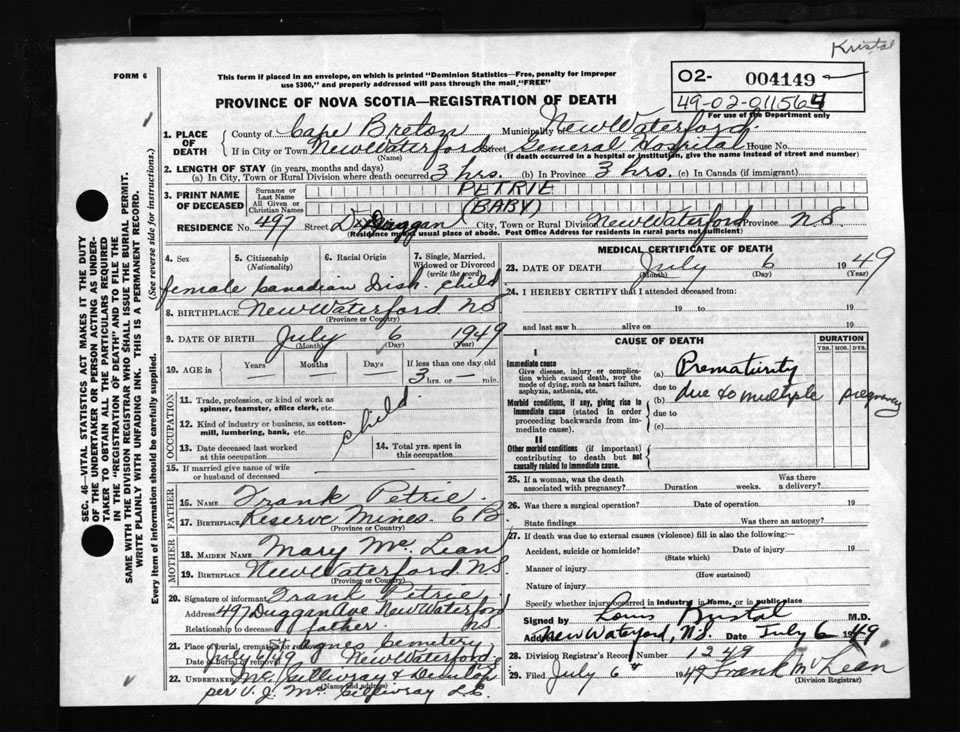 Kristal
FORM 6
This form if placed in an envelope, on which is printed "Dominion Statistics—Free, penalty for improper
use $300," and properly addressed will pass through the mail "FREE"
O2- 004149
49-02-011564
For use of the Department only
PROVINCE OF NOVA SCOTIA—REGISTRATION OF DEATH
1. PLACE OF DEATH
County of Cape Breton Municipality New Waterford
If in City or Town New Waterford Street General Hospital House No.
(Name) (If death occurred in a hospital or institution, give the name instead of street and number)
2. LENGTH OF STAY (in years, months and days)
(a) In City, Town or Rural Division where death occurred 3 hrs. (b) In Province 3 hrs. (c) In Canada (if immigrant)
3. PRINT NAME OF DECEASED
Surname or Last Name PETRIE
All Given or Christian Names (BABY)
RESIDENCE No. 497 Street Duggan City, Town or Rural Division New Waterford Province N.S.
(Residence means usual place of abode. Post Office Address for residents in rural parts not sufficient)
4. Sex
5. Citizenship (Nationality)
6. Racial Origin
7. Single, Married, Widowed or Divorced (write the word)
female Canadian child
8. BIRTHPLACE New Waterford N.S.
(Province or Country)
9. DATE OF BIRTH July 6 1949
(Month) (Day) (Year)
10. AGE in Years Months Days If less than one day old
3 hrs. or min.
OCCUPATION
11. Trade, profession, or kind of work as spinner, teamster, office clerk, etc.
12. Kind of industry or business, as cotton-mill, lumbering, bank, etc.
child
13. Date deceased last worked at this occupation
14. Total yrs. spent in this occupation
15. If married give name of wife or husband of deceased
FATHER
16. NAME Frank Petrie
17. BIRTHPLACE Reserve Mines. C B
(Province or Country)
MOTHER
18. MAIDEN NAME Mary Mc Lean
19. BIRTHPLACE New Waterford N.S.
(Province or Country)
20. Signature of informant Frank Petrie
Address 497 Duggan Ave New Waterford
Relationship to deceased father NS
21. Place of burial, cremation or removal St Agnes Cemetery
Date of burial or removal July 6/49 New Waterford
22. UNDERTAKER Mc Gillivray & Dunlop
(Name and Address)
per V. J. Mc Gillivray
MEDICAL CERTIFICATE OF DEATH
23. DATE OF DEATH July 6 1949
(Month) (Day) (Year)
24. I HEREBY CERTIFY that I attended deceased from:
19 to 19
and last saw h alive on 19
CAUSE OF DEATH
DURATION
YRS. MOS. DYS.
I
Immediate cause
Give disease, injury or complication which caused death, not the mode of dying, such as heart failure, asphyxia, asthenia, etc.
(a) Prematurity
due to
Morbid conditions, if any, giving rise to immediate cause (stated in order proceeding backwards from immediate cause).
(b) due to multiple pregnancy
due to
(c)
II
Other morbid conditions (if important) contributing to death but not causally related to immediate cause.
25. If a woman, was the death associated with pregnancy? Duration weeks. Was there a delivery?
26. Was there a surgical operation? Date of operation 19
State findings Was there an autopsy?
27. If death was due to external causes (violence) fill in also the following:—
Accident, suicide or homicide? Date of injury 19
(State which)
Manner of injury
(How sustained)
Nature of injury
Specify whether injury occurred in Industry, in Home, or in public place
Signed by M.D.
Address New Waterford, N.S. Date July 6 1949
28. Division Registrar's Record Number 1249
29. Filed July 6 1949 Frank Mc Lean
(Division Registrar)
SEC. 46—VITAL STATISTICS ACT MAKES IT THE DUTY
OF THE UNDERTAKER OR PERSON ACTING AS UNDER-
TAKER TO OBTAIN ALL THE PARTICULARS REQUIRED
IN THE "REGISTRATION OF DEATH" AND TO FILE THE
SAME WITH THE DIVISION REGISTRAR WHO SHALL ISSUE THE BURIAL PERMIT.
WRITE PLAINLY WITH UNFADING INK. THIS IS A PERMANENT RECORD.
Every item of information should be carefully supplied. (See reverse side for instructions.)